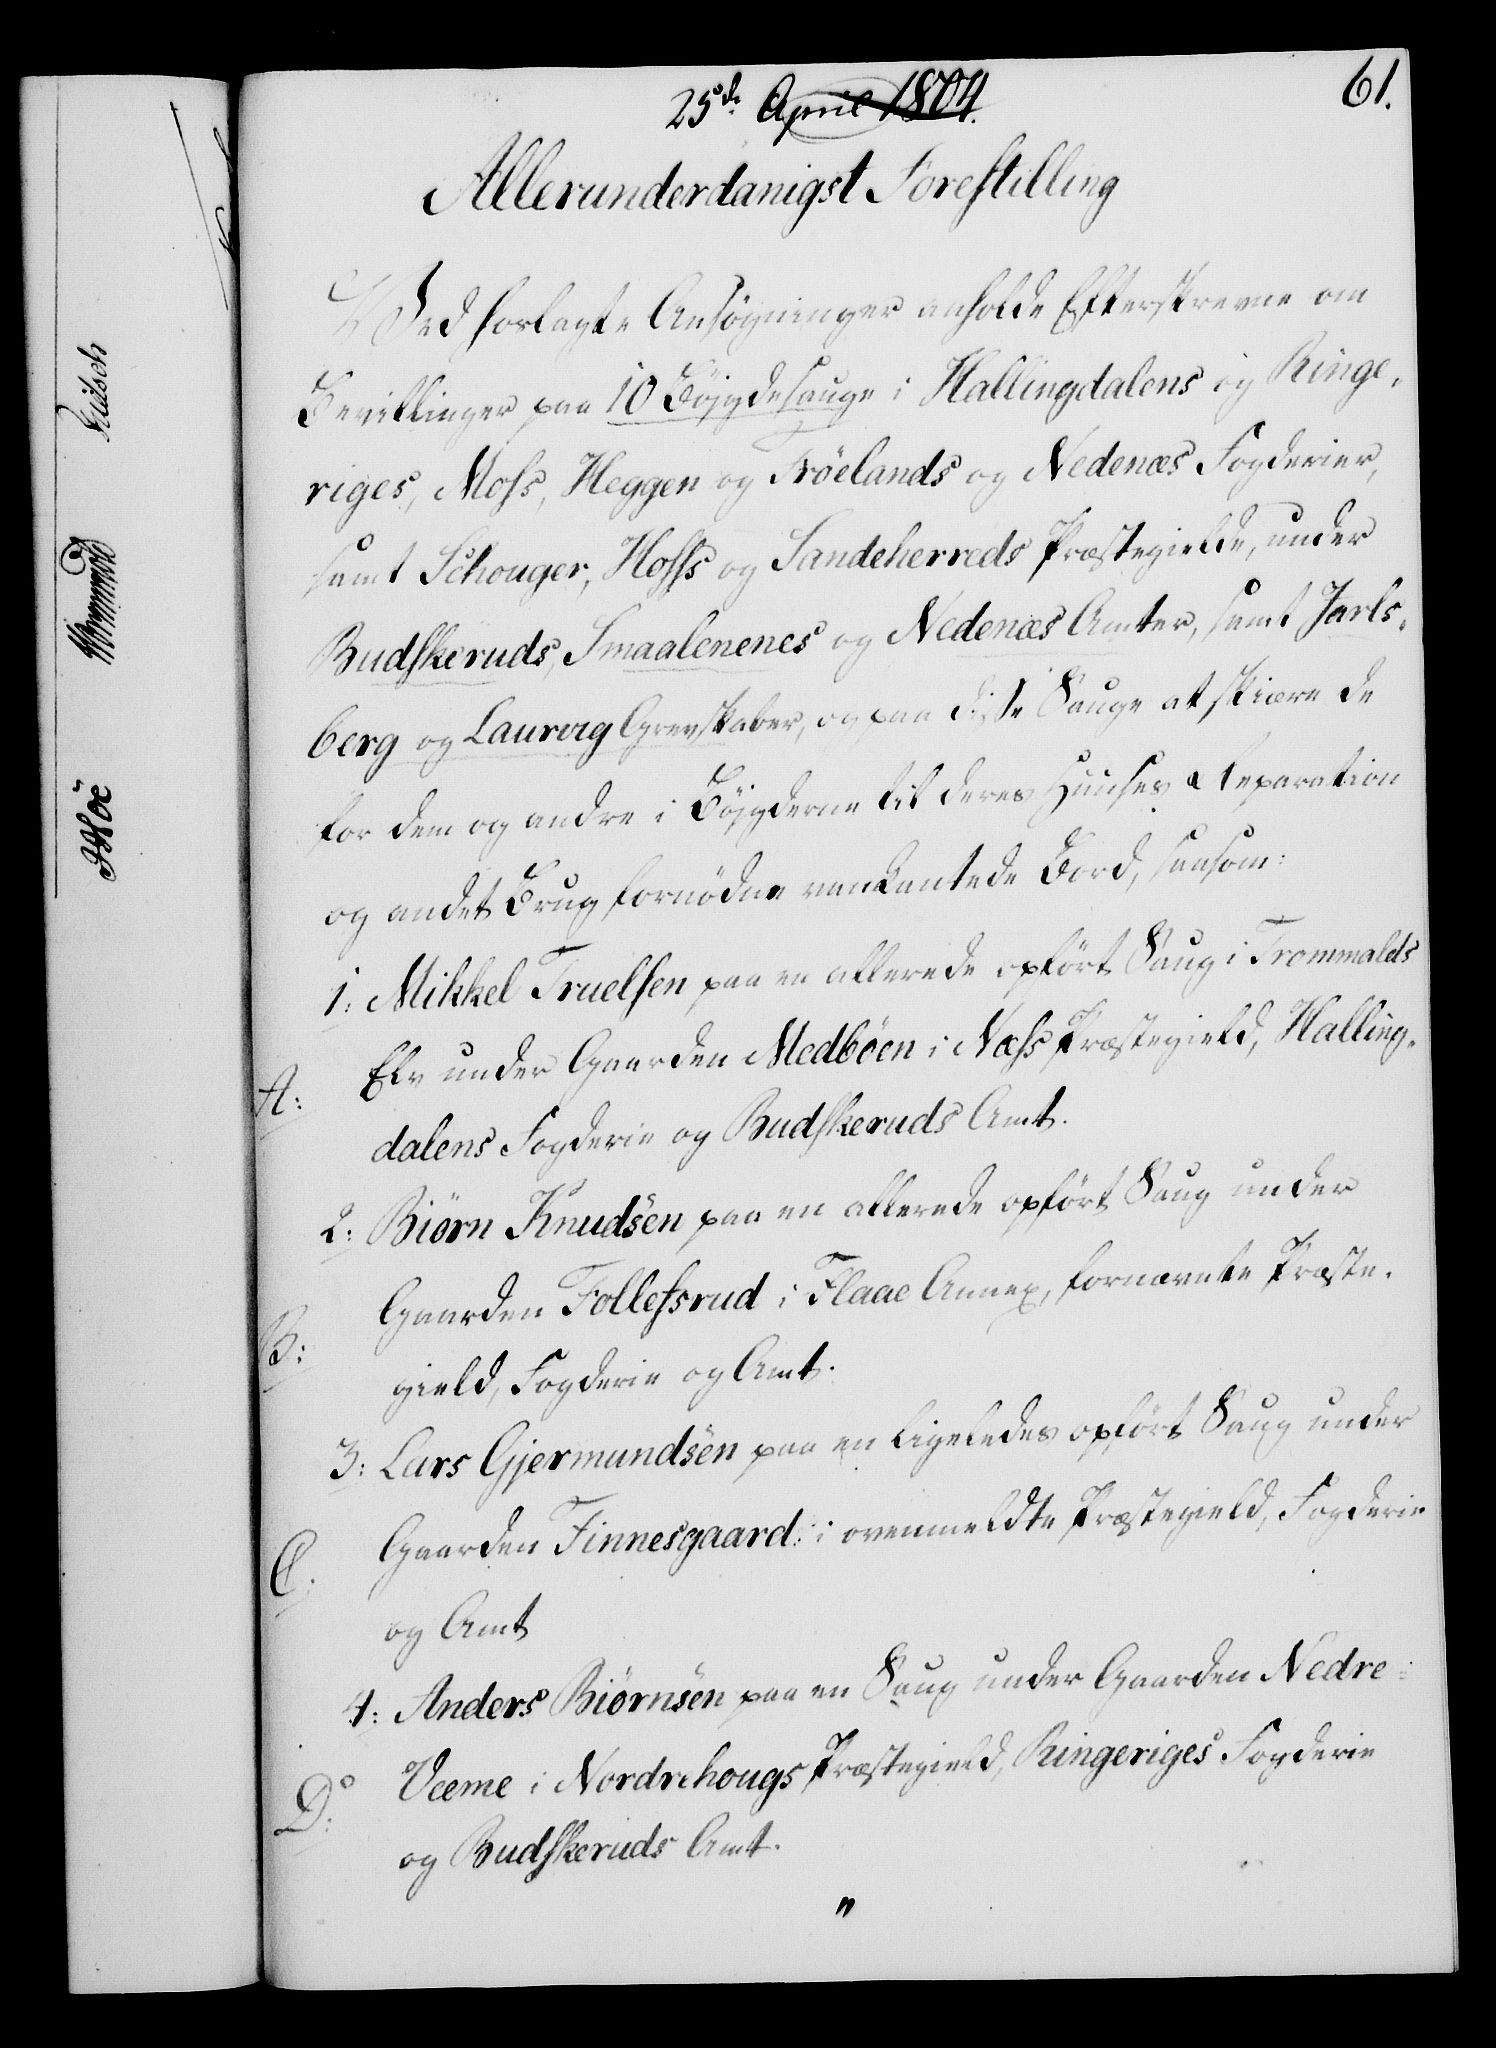 61.
25de April 1804.
Allerunderdanigst Forestilling
Ved forlagte Ansøgninger anholde Efterskrevne om
Bevillinger paa 10 Böjgdesauge i Hallingdalens og Ringe-
riges, Moss, Heggen og Fröelands og Nedenæs Fogderier,
samt Schouger, Hoffs og Sandeherreds Præstegielde, under
Budskeruds, Smaalenenes og Nedenæs Amter, samt Jarls-
berg og Laurvig Grevskaber, og paa disse Sauge at skiære de
for dem og andre i Böjgderne til deres Huuses Reparation
og andet Brug fornödne vankantede Bord, saasom:
1: Mikkel Truelsen paa en allerede opført Saug i Trommalds
Elv under Gaarden Medböen i Næss Præstegield, Halling-
A:
dalens Fogderie og Budskeruds Amt.
2: Biørn Knudsen paa en allerede opført Saug under
Gaarden Follessrud i Flaae Annex, fornævnte Præste-
B:
gield, Fogderie og Amt.
3: Lars Gjermundsen paa en ligeledes opført Saug under
Gaarden Finnesgaard i ovenmeldte Præstegield, Fogderie
C:
og Amt
4: Anders Biørnsen paa en Saug under Gaarden Nedre-
Væme i Nordrehougs Præstegield, Ringeriges Fogderie
D:
og Budskeruds Amt.
"
Wormskiold